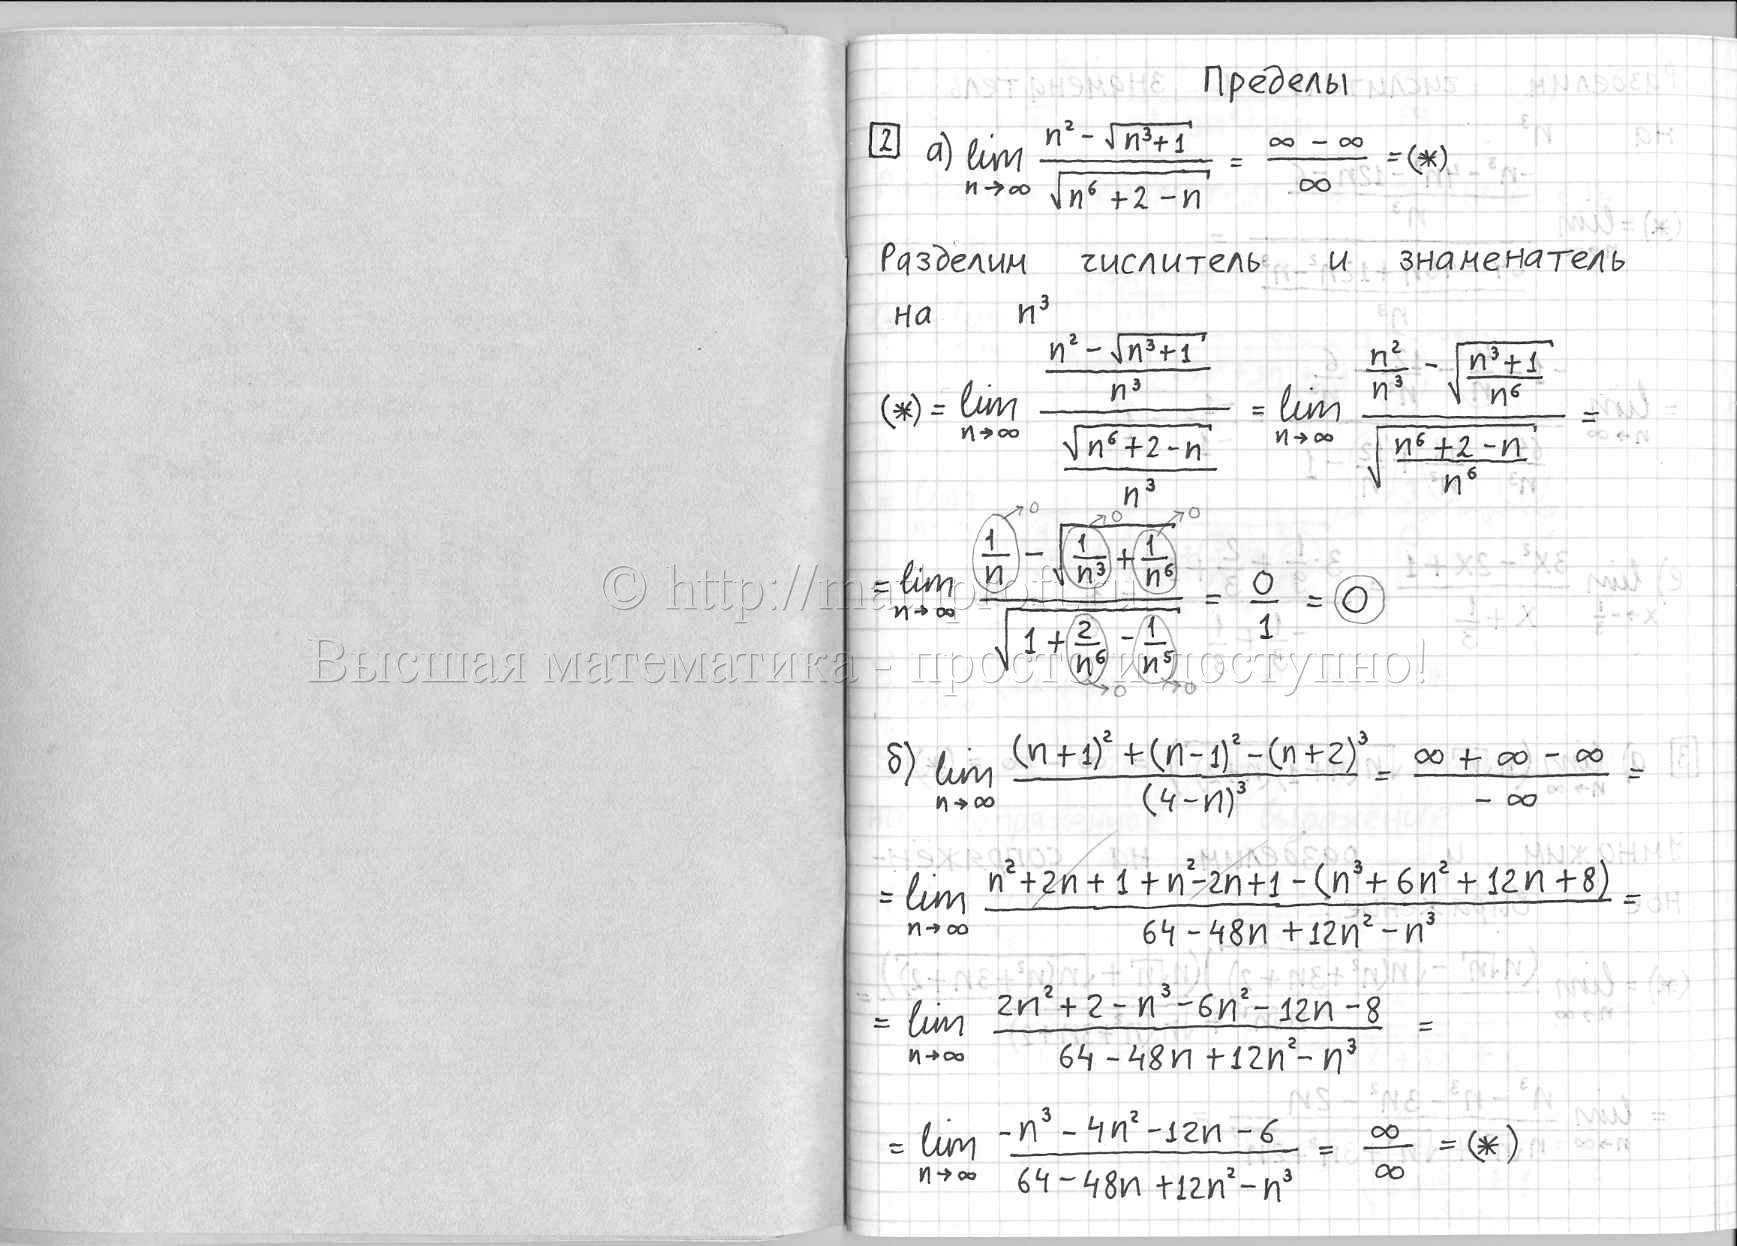 Пределы
2 а) lim n→∞ (n² − √(n³+1)) / √(n⁶+2−n) = (∞ − ∞)/∞ = (*)
Разделим числитель и знаменатель
на n³
(*) = lim n→∞ ((n² − √(n³+1))/n³) / (√(n⁶+2−n)/n³) = lim n→∞ (n²/n³ − √((n³+1)/n⁶)) / √((n⁶+2−n)/n⁶) =
= lim n→∞ (1/n →0 − √(1/n³ →0 + 1/n⁶ →0)) / √(1 + 2/n⁶ →0 − 1/n⁵ →0) = 0/1 = 0
© http://ma
Высшая математика - просто и доступно!
б) lim n→∞ ((n+1)² + (n−1)² − (n+2)³) / (4−n)³ = (∞ + ∞ − ∞)/(−∞) =
= lim n→∞ (n²+2n+1+n²−2n+1−(n³+6n²+12n+8)) / (64−48n+12n²−n³) =
= lim n→∞ (2n²+2−n³−6n²−12n−8) / (64−48n+12n²−n³) =
= lim n→∞ (−n³−4n²−12n−6) / (64−48n+12n²−n³) = ∞/∞ = (*)